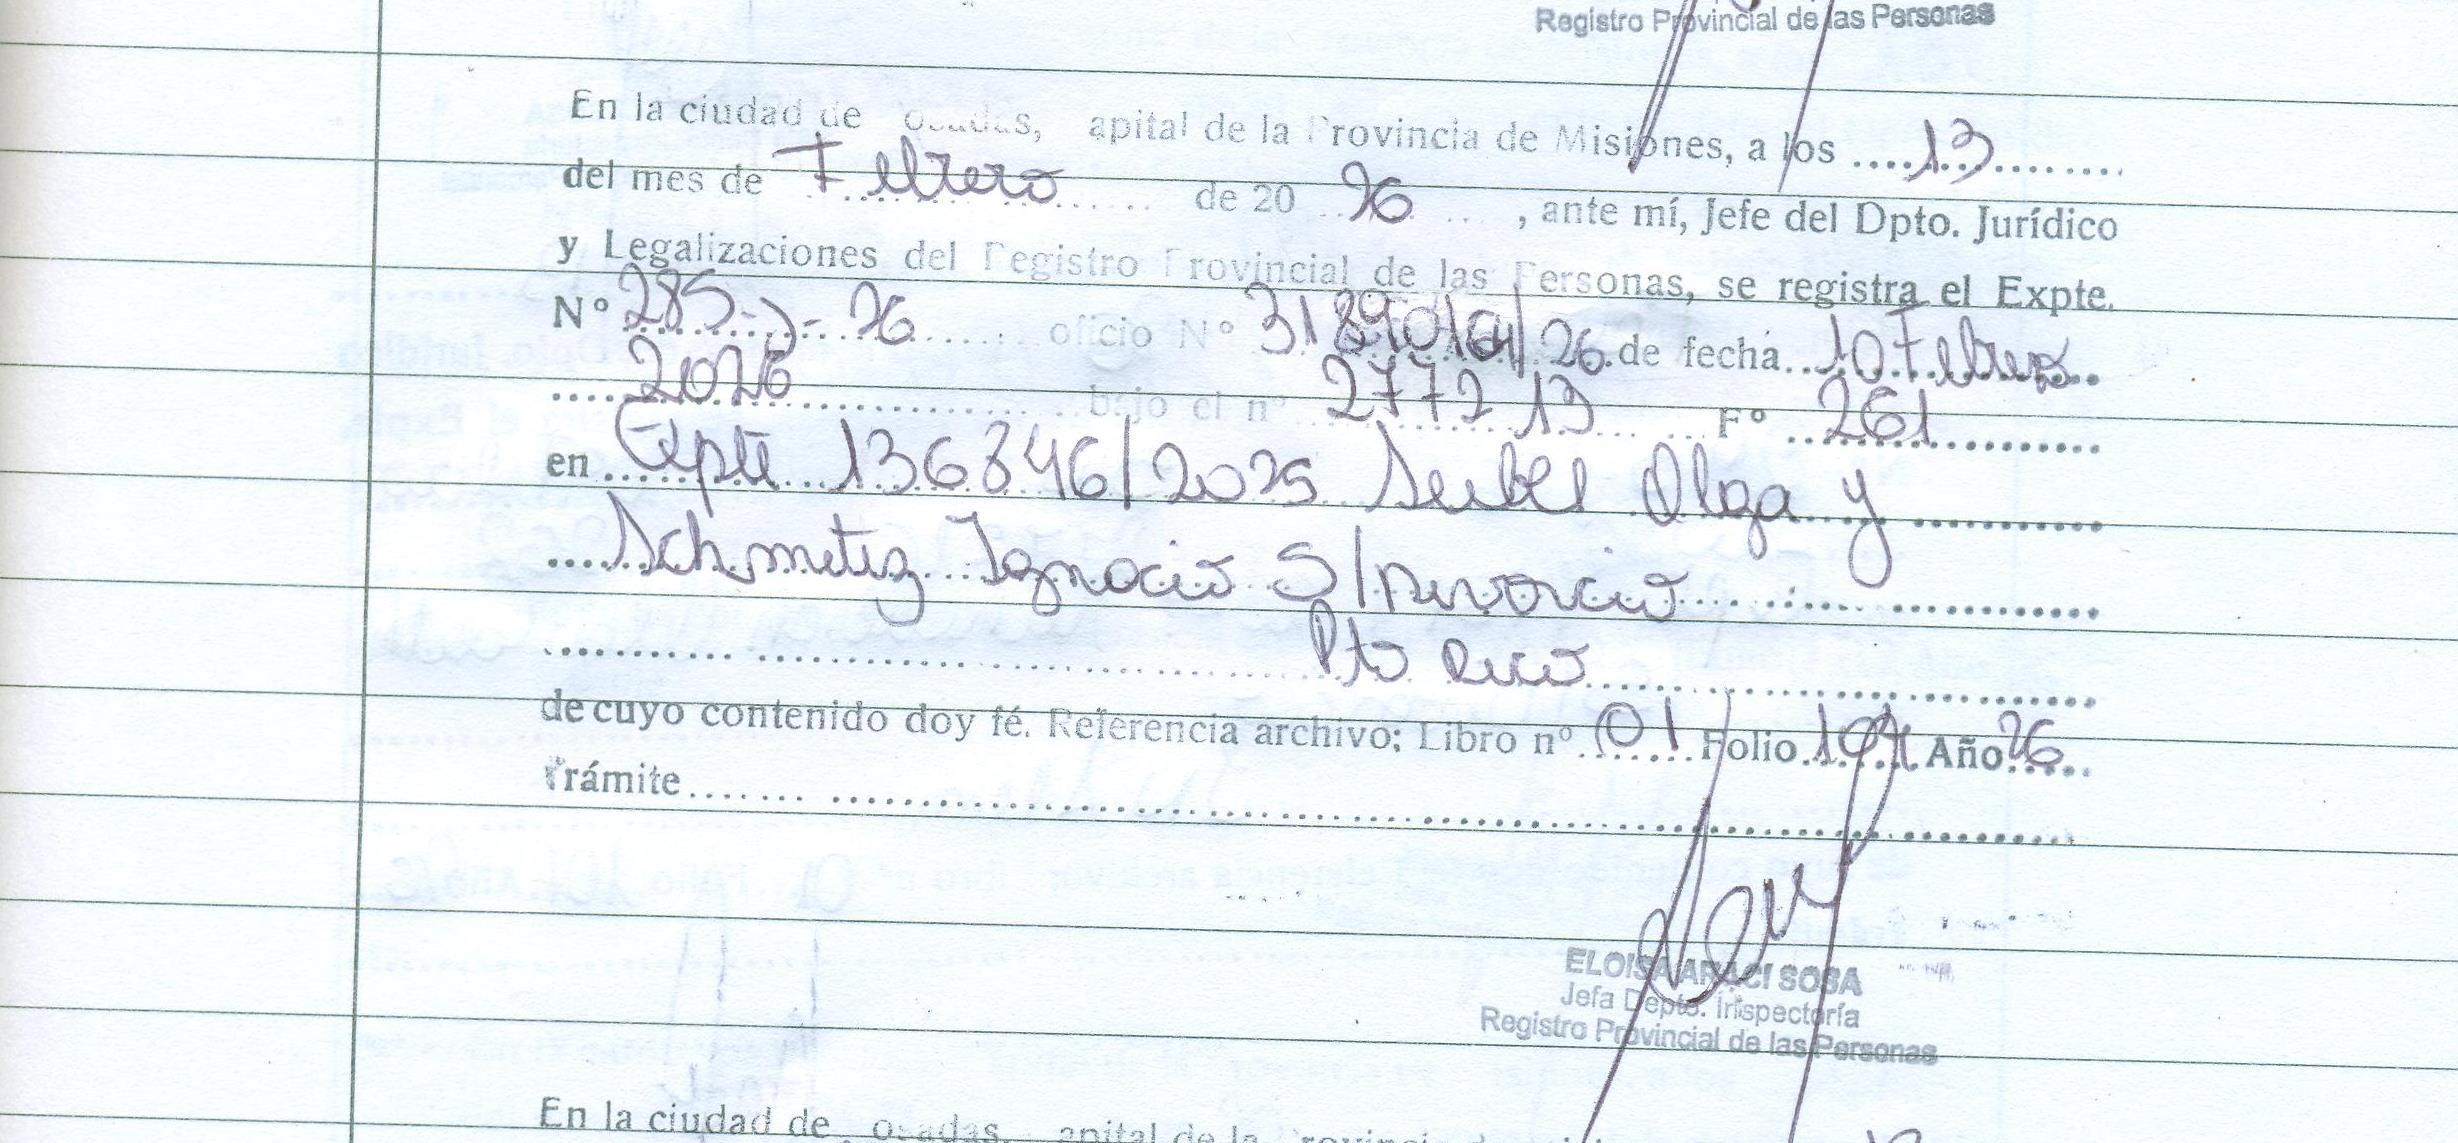 Registro Provincial de las Personas
En la ciudad de osadas, apital de la Provincia de Misiones, a los ....13........
del mes de Febrero de 20 26 , ante mí, Jefe del Dpto. Jurídico
y Legalizaciones del Registro Provincial de las Personas, se registra el Expte.
Nº 285-J-26 oficio Nº /26 de fecha 10 Febrero
2026 bajo el nº 2772 13 Fº 261
en Expte 136846/2025 Seibel Olga y
Schmetiz Ignacio S/Divorcio
Pto Rico
de cuyo contenido doy fé. Referencia archivo; Libro nº 01 Folio Año 26
Trámite
ELOISA ARACI SOSA
Jefa Depto. Inspectoría
Registro Provincial de las Personas
En la ciudad de osadas, apital de la Provincia